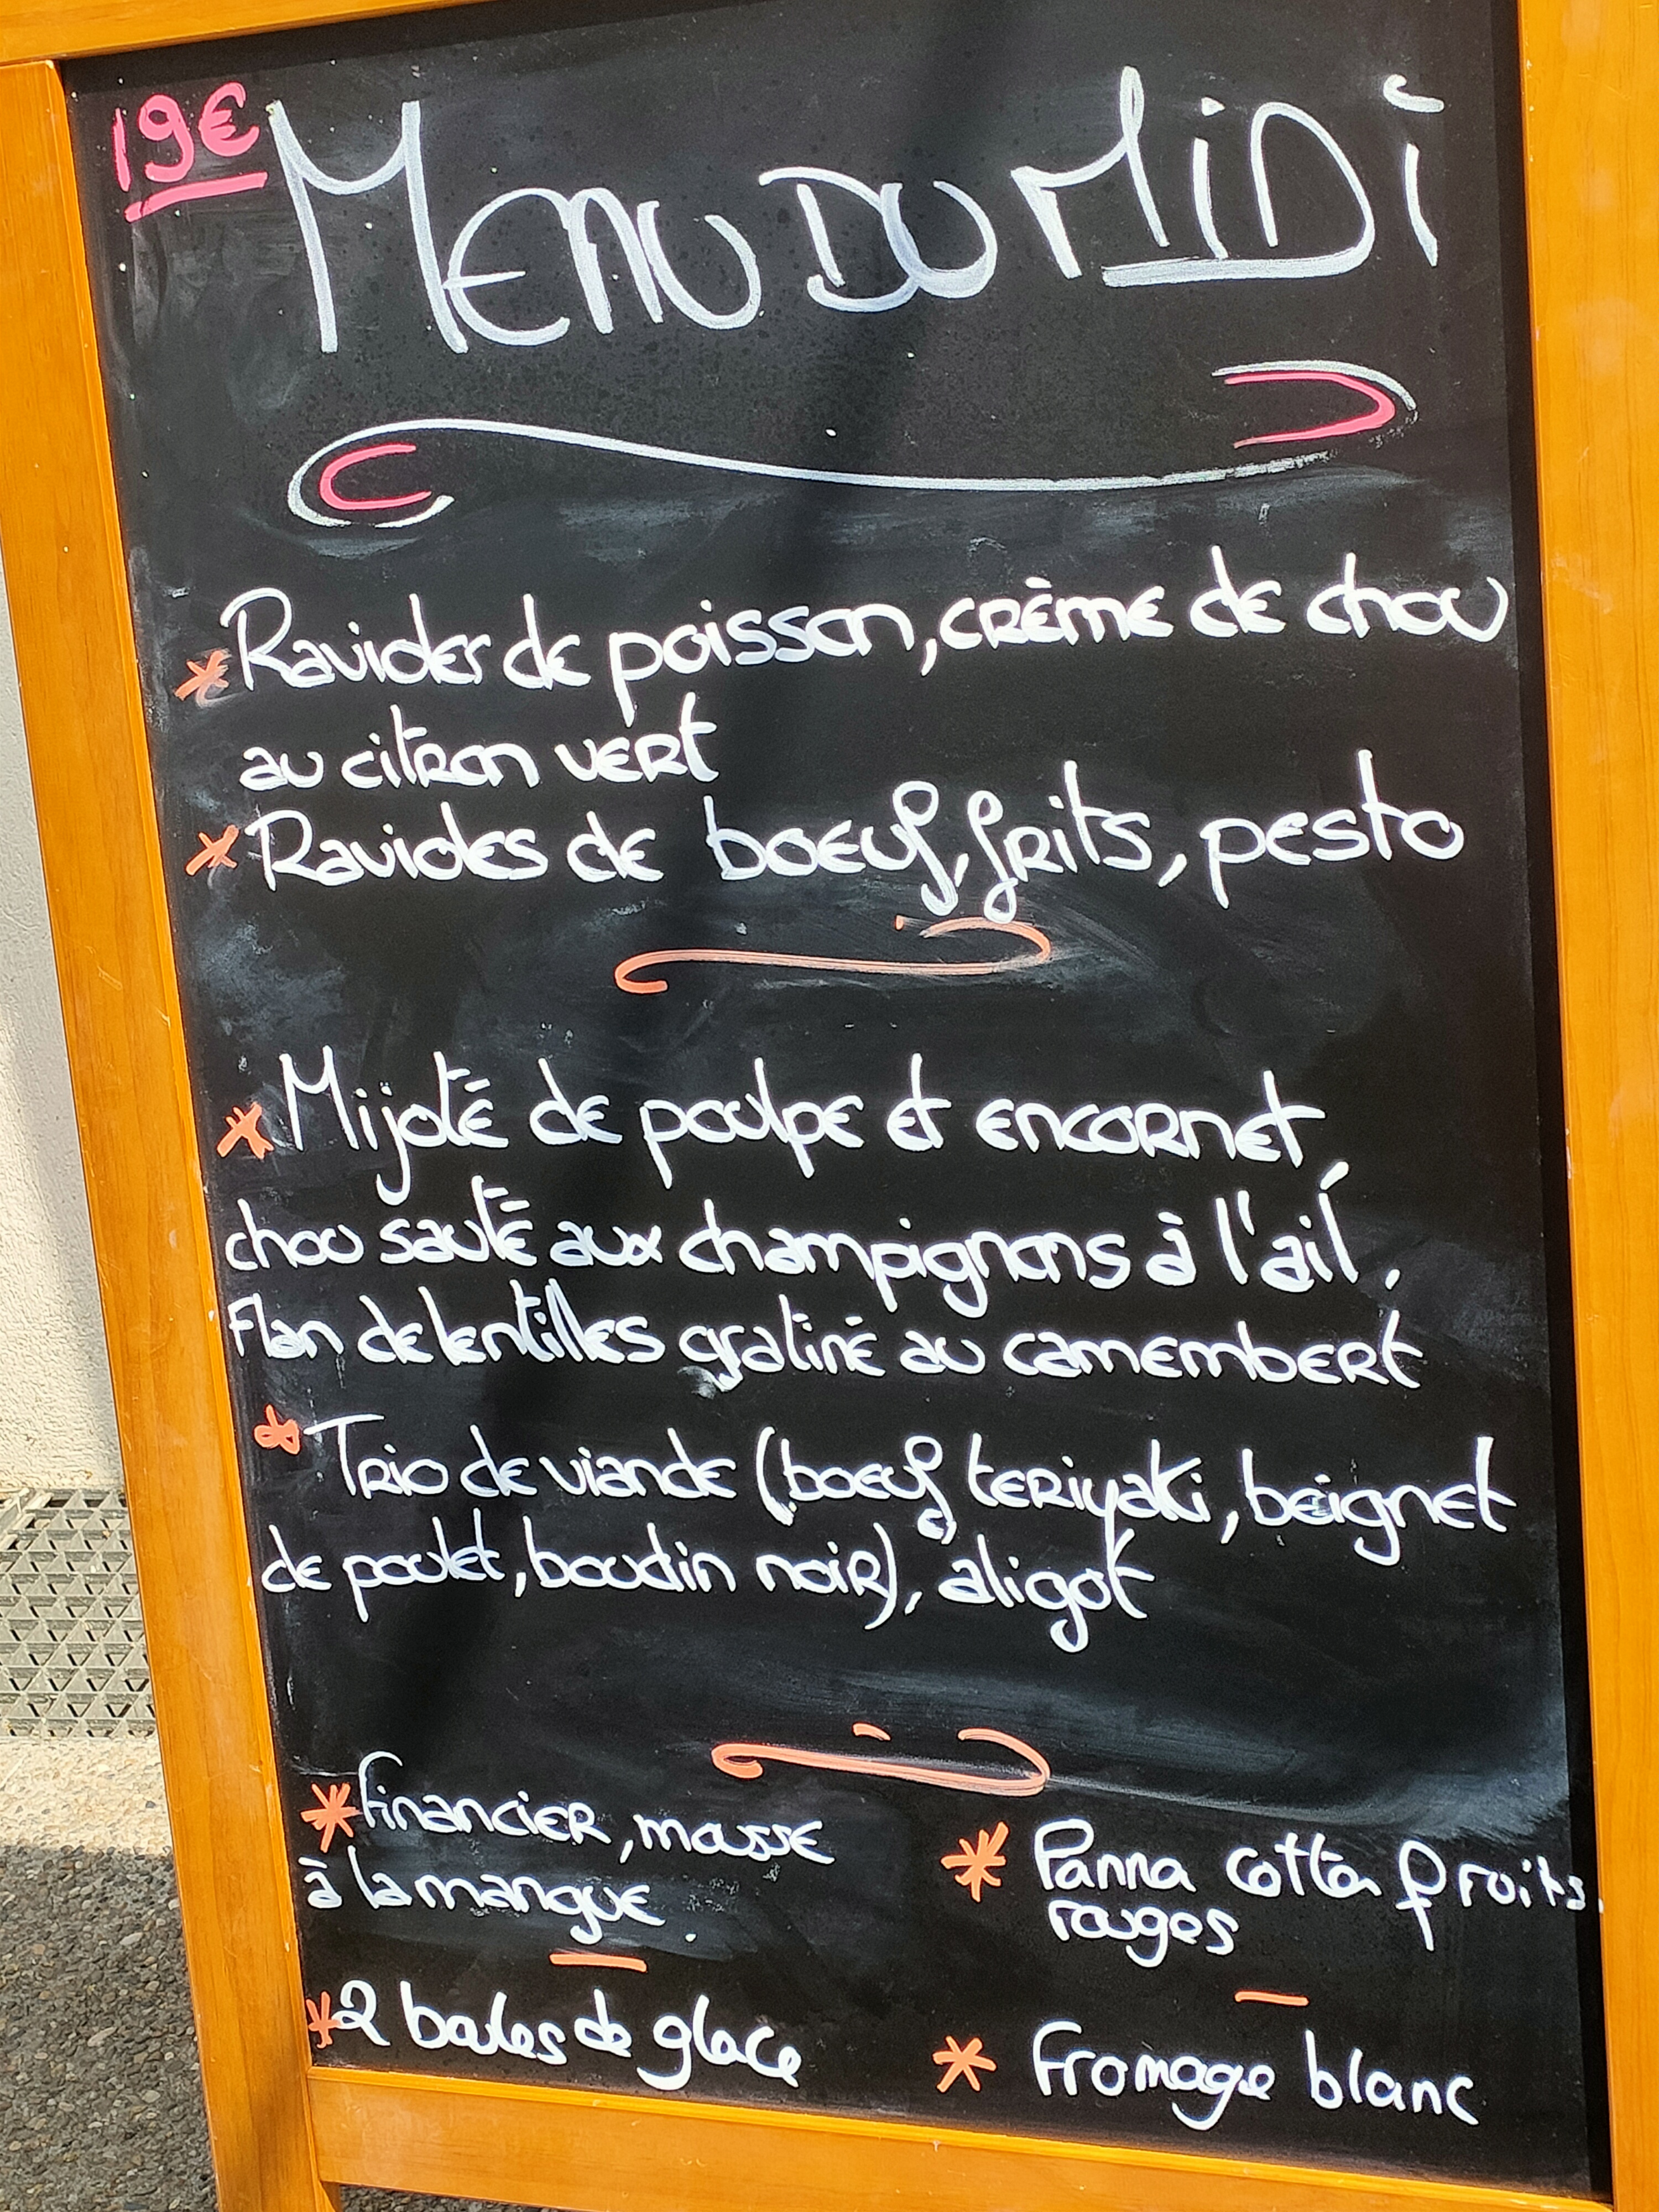 19€
MENU DU MiDi
Ravioles de poisson, crème de chou
au citron vert
Ravioles de boeuf, frits, pesto
Mijoté de poulpe et encornet,
chou sauté aux champignons à l'ail,
Flan de lentilles gratiné au camembert
Trio de viande (boeuf teriyaki, beignet
de poulet, boudin noir), aligot
financier, mousse
à la mangue
Panna cotta fruits
rouges
2 boules de glace
Fromage blanc